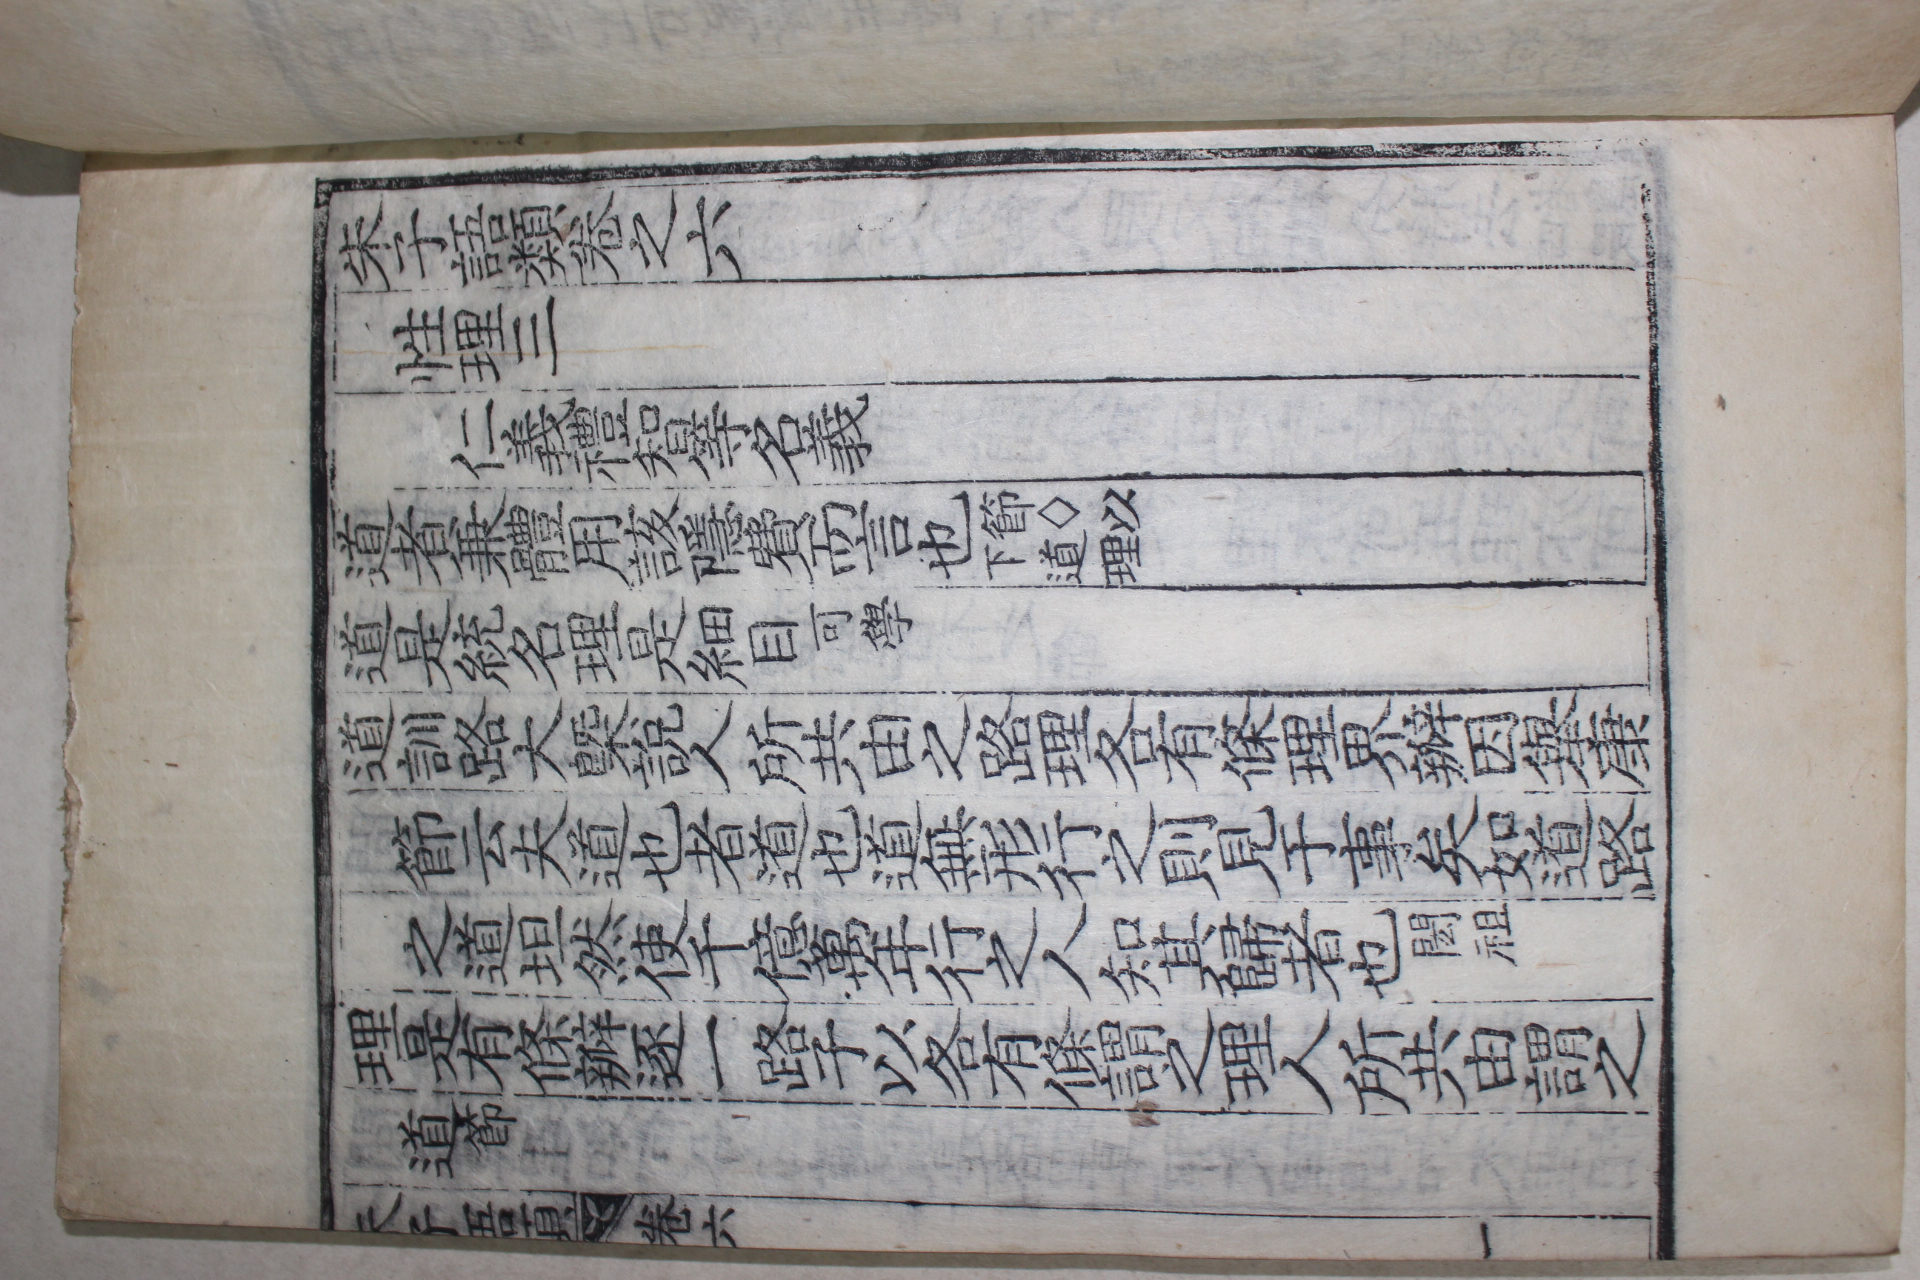 朱子語類卷之六
性理三
仁義禮智等名義
道者兼體用該隱費而言也節◇以下道理
道是統名理是細目可學
道訓路大槩說人所共由之路理各有條理界瓣因擧康
節云夫道也者道也道無形行之則見于事矣如道路
之道坦然使千億萬年行之人知其歸者也閎祖
理是有條瓣逐一路子以各有條謂之理人所共由謂之
道節
朱子語類 卷六 一